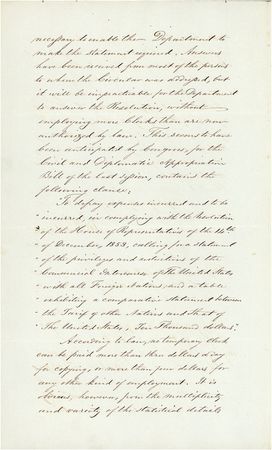 necessary to enable the Department to
make the statement required. Answers
have been received from most of the persons
to whom the Circular was addressed, but
it will be impracticable for the Department
to answer the Resolution, without
employing more Clerks than are now
authorized by law. This seems to have
been anticipated by Congress, for the
Civil and Diplomatic Appropriation
Bill of the last session, contains the
following clause,
"To defray expenses incurred and to be
" incurred, in complying with the Resolution
" of the House of Representatives of the 14th
" of December, 1853, calling for a statement
" of the privileges and restrictions of the
" Commercial Intercourse of the United States
" with all Foreign Nations, and a table
" exhibiting a comparative statement between
" the Tariff of other Nations and that of
" The United States, Ten Thousand dollars."
According to law, no temporary Clerk
can be paid more than three dollars a day
for copying, or more than four dollars for
any other kind of employment. It is
however, from the multiplicity
and variety of the statistical details